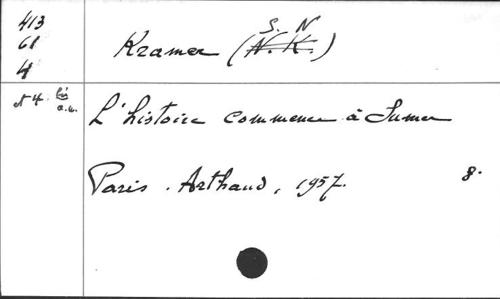 413
61
4
S. N
Kramer (N. K.)
N 4 bis
a.u.
L'histoire commence à Sumer
Paris. Arthaud, 1957. 8.